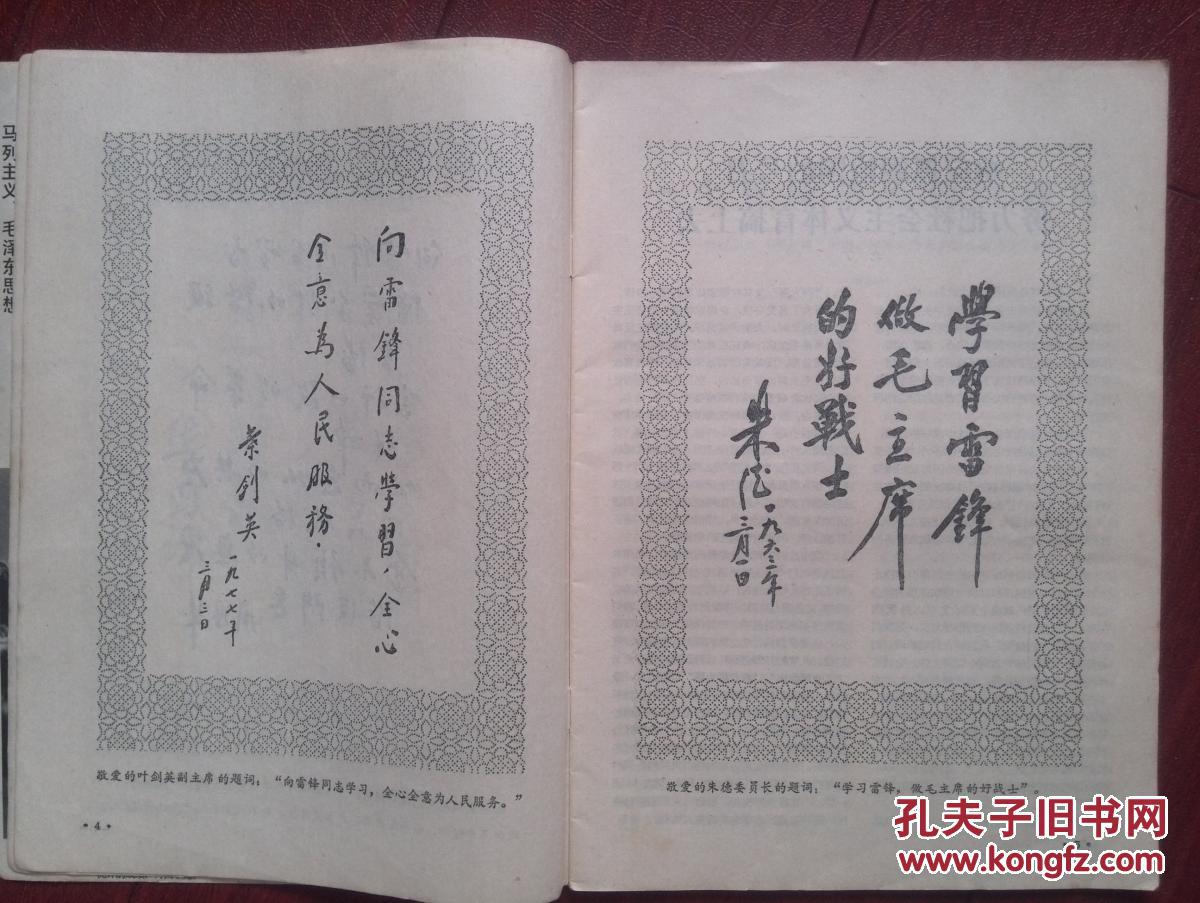 马列主义、毛泽东思想
向雷鋒同志學習,全心
全意為人民服務.
葉劍英
一九七七年
三月三日
敬爱的叶剑英副主席的题词:“向雷锋同志学习,全心全意为人民服务。”
•4•
學習雷鋒
做毛主席
的好戰士
朱德
一九六三年
三月一日
敬爱的朱德委员长的题词:“学习雷锋,做毛主席的好战士”。
孔夫子旧书网
www.kongfz.com